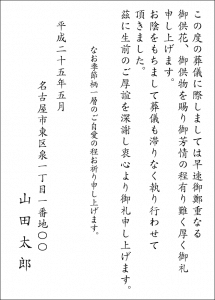 この度の葬儀に際しましては早速御鄭重なる
御供花、御供物を賜り御芳情の程有り難く厚く御礼
申し上げます。
お陰をもちまして葬儀も滞りなく執り行わせて
頂きました。
茲に生前のご厚誼を深謝し衷心より御礼申し上げます。
なお季節柄一層のご自愛の程お祈り申し上げます。
平成二十五年五月
名古屋市東区泉一丁目一番地〇〇
山田太郎